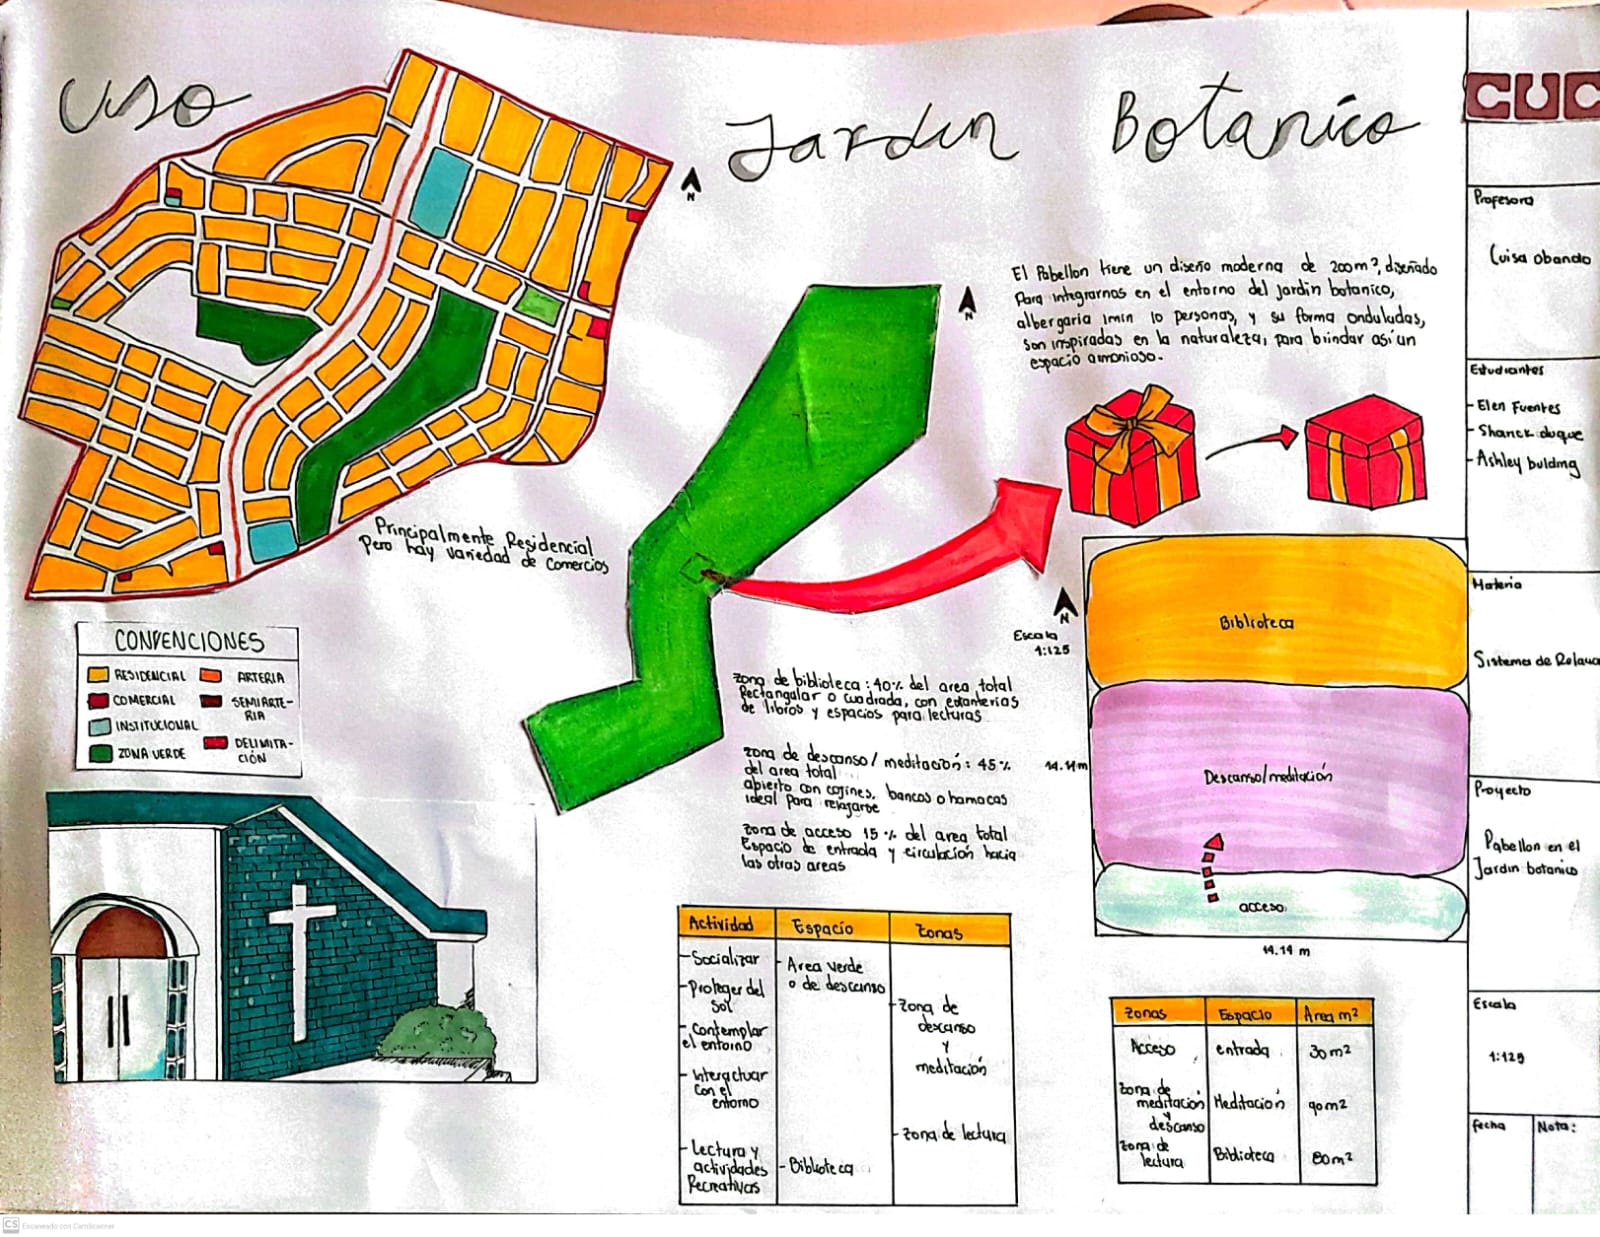 Uso
Jardin Botanico
N
Principalmente Residencial
Pero hay variedad de comercios
CONVENCIONES
RESIDENCIAL
COMERCIAL
INSTITUCIONAL
ZONA VERDE
ARTERIA
SEMIARTE-
RIA
DELIMITA-
CIÓN
N
El Pabellon tiene un diseño moderna de 200m², diseñado
Para integrarnos en el entorno del jardin botanico,
albergaria 1min 10 personas, y su forma onduladas,
son inspiradas en la naturaleza, para brindar asi un
espacio amonioso.
N
Escala
1:125
Biblioteca
Descanso/meditación
acceso.
14.14m
14.14 m
zona de biblioteca : 40% del area total
Rectangular o cuadrada, con estanterias
de libros y espacios para lecturas
zona de descanso / meditación : 45%
del area total
abierto con cojines, bancos o hamacas
ideal para relajarse
zona de acceso 15% del area total
Espacio de entrada y circulación hacia
las otras areas
Actividad
Espacio
Zonas
- Socializar
- Proteger del
sol
- Contemplar
el entorno
- Interactuar
con el
entorno
- Lectura y
actividades
Recreativas
- Area verde
o de descanso
- Biblioteca
- Zona de
descanso
y
meditación
- zona de lectura
Zonas Espacio Area m²
Acceso entrada 30m²
zona de
meditación
y
descanso
Meditación 90m²
zona de
lectura
Biblioteca 80m²
CUC
Profesora
Luisa obando
Estudiantes
- Elen Fuentes
- Shanck duque
- Ashley bulding
Materia
Sistema de
Proyecto
Pabellon en el
Jardin botanico
Escala
1:125
fecha
Nota:
CS Escaneado con CamScanner